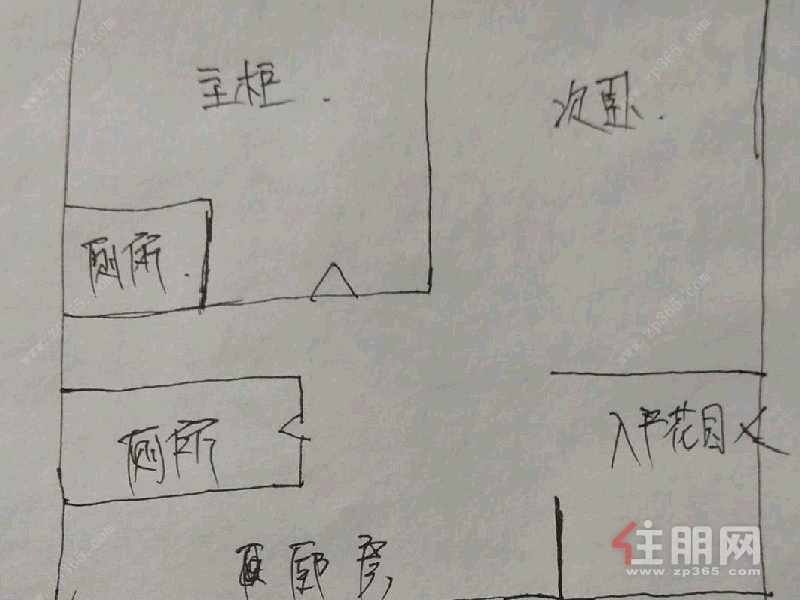 主柜.
次卧.
厕所.
厕所
入户花园
卧房
住朋网
www.zp365.com